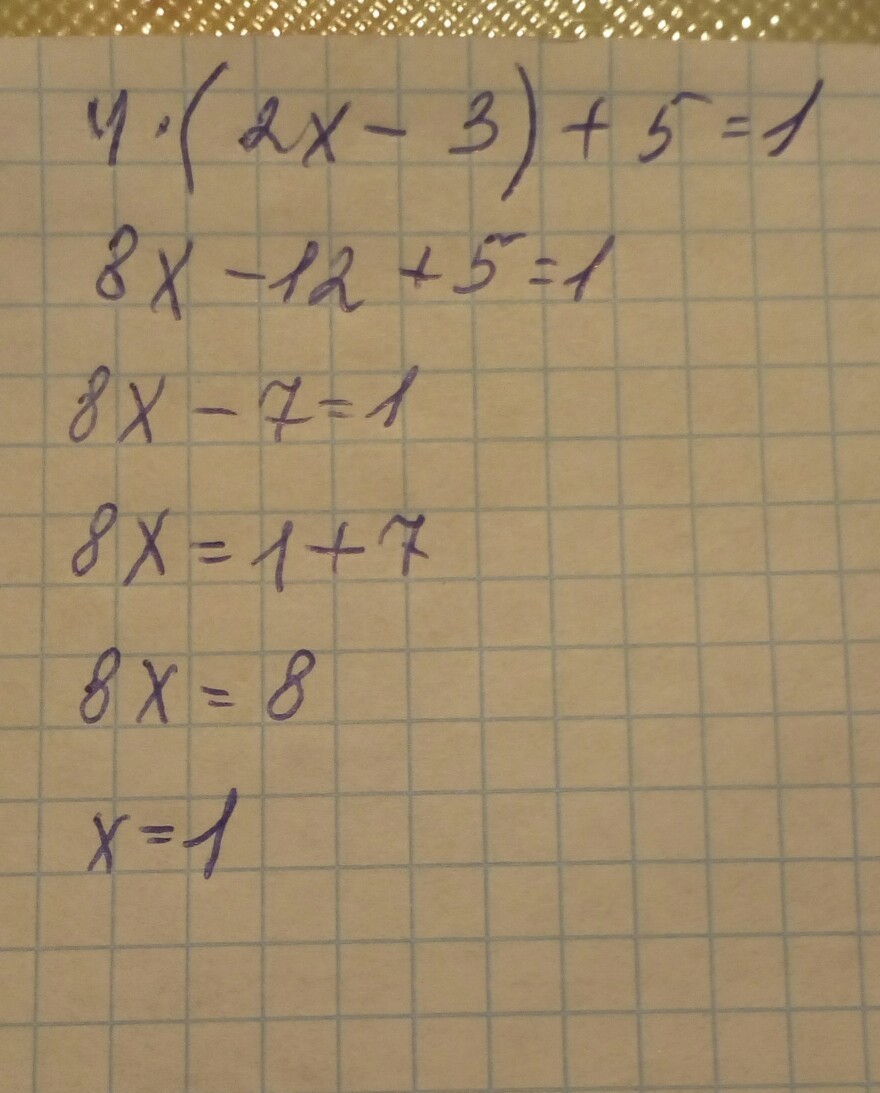 4·(2x - 3) + 5 = 1
8x - 12 + 5 = 1
8x - 7 = 1
8x = 1 + 7
8x = 8
x = 1